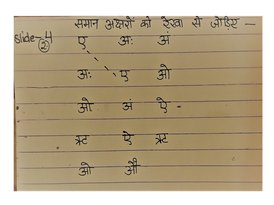 समान अक्षरों को रेखा से जोड़िए —
Slide-4
2
ए अः अं
अः ए ओ
ओ अं ऐ -
ऋ ऐ ऋ
ओ औ